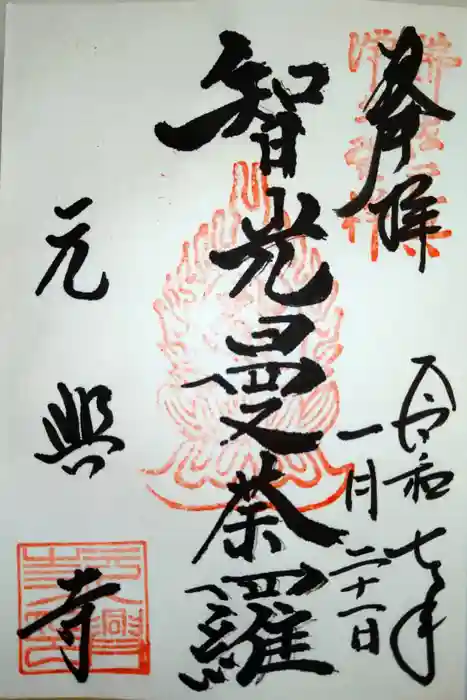 奉拝
令和七年
一月二十一日
智光曼荼羅
元興寺